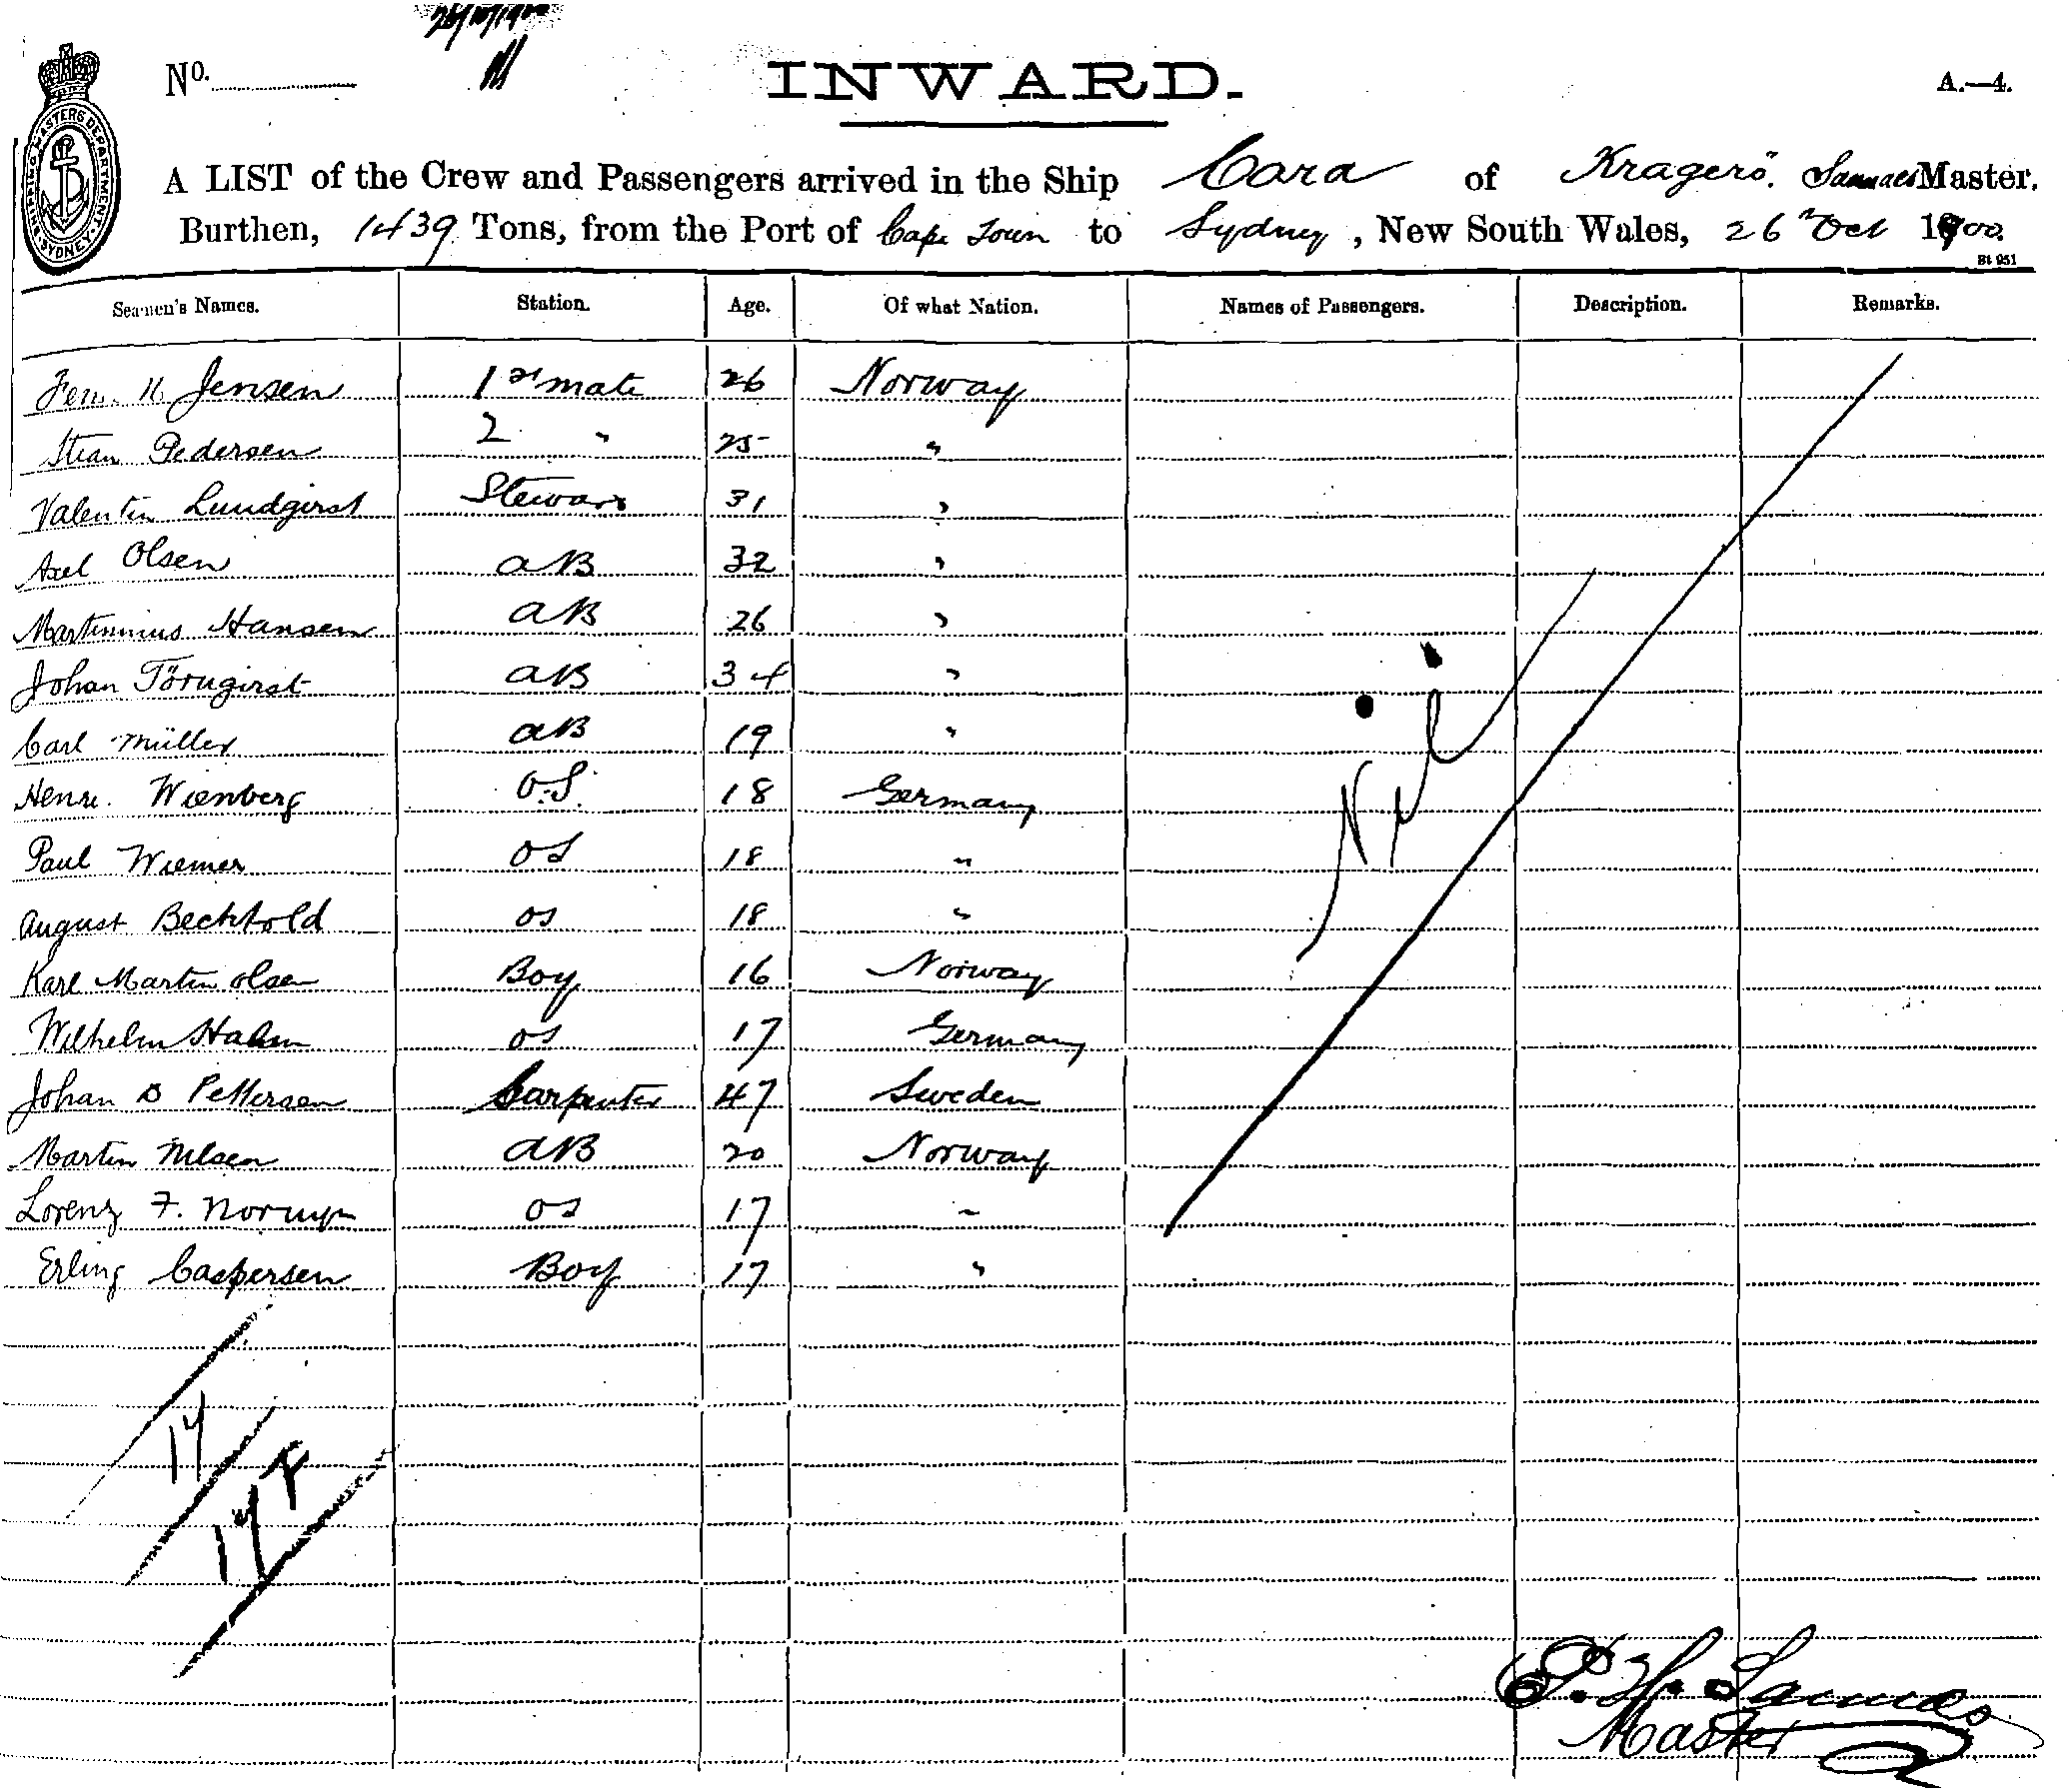 No.
INWARD.
A.—4.
SHIPPING MASTERS DEPARTMENT SYDNEY
A LIST of the Crew and Passengers arrived in the Ship Cara of Kragerö. Master.
Burthen, 1439 Tons, from the Port of Cape Town to Sydney, New South Wales, 26th Oct 1900
Bt 951
Seamen's Names. Station. Age. Of what Nation. Names of Passengers. Description. Remarks.
Jensen 1st mate 26 Norway
Stian Pedersen 2 " 25 "
Valentin Lundqirst Steward 31 "
Axel Olsen AB 32 "
Martinnius Hansen AB 26 "
Johan Törnqirst AB 34 "
Carl Müller AB 19 "
Henri. Wienberg O.S. 18 Germany
Paul Wiemer OS 18 "
August Bechtold OS 18 "
Karl Martin Olsen Boy 16 Norway
Wilhelm Hahn OS 17 Germany
Johan B Pettersen Carpenter 47 Sweden
Martin Nilsen AB 20 Norway
Lorenz F. OS 17 "
Erling Caspersen Boy 17 "
Nil
17
17 F
P. H. Sannæs
Master